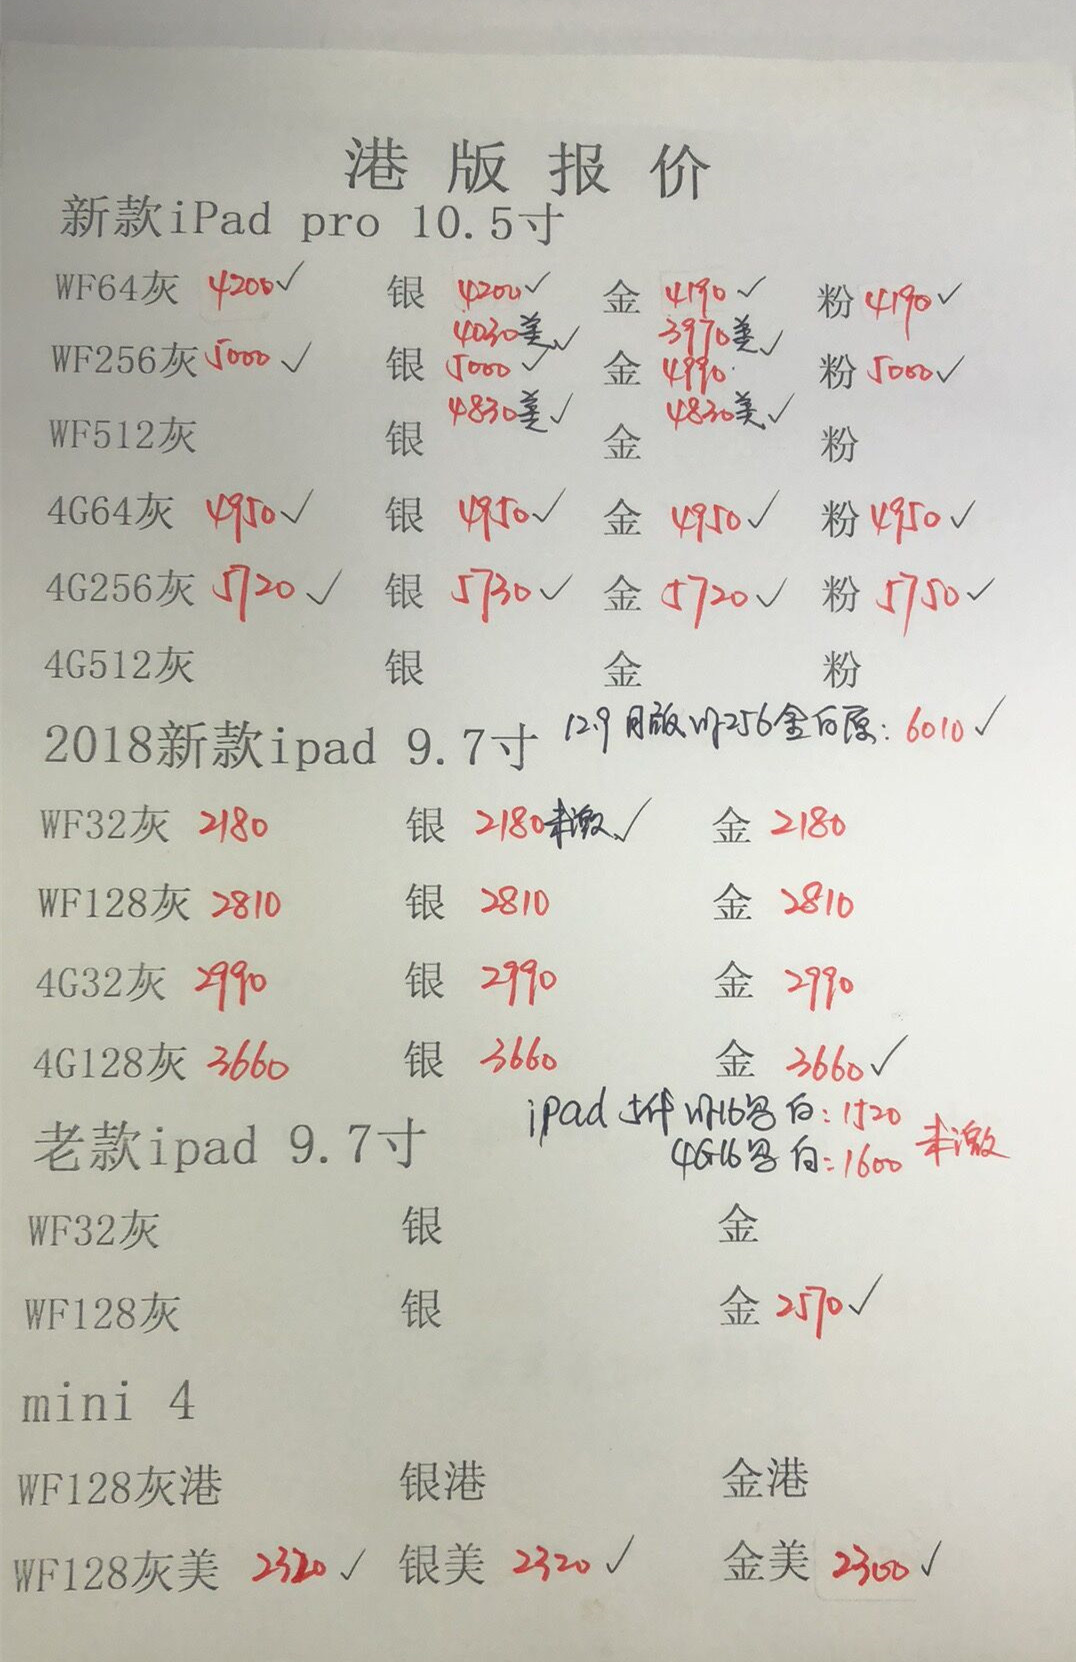 港版报价
新款iPad pro 10.5寸
WF64灰 4200✓ 银 4200✓ 金 4190✓ 粉 4190✓
4030美✓ 3970美✓
WF256灰 5000✓ 银 5000✓ 金 4990 粉 5000✓
4830美✓ 4830美✓
WF512灰 银 金 粉
4G64灰 4950✓ 银 4950✓ 金 4950✓ 粉 4950✓
4G256灰 5720✓ 银 5730✓ 金 5720✓ 粉 5750✓
4G512灰 银 金 粉
12.9 256金白原: 6010✓
2018新款ipad 9.7寸
WF32灰 2180 银 2180未激✓ 金 2180
WF128灰 2810 银 2810 金 2810
4G32灰 2990 银 2990 金 2990
4G128灰 3660 银 3660 金 3660✓
ipad 5代 16 白:1520
4G16 白:1600 未激
老款ipad 9.7寸
WF32灰 银 金
WF128灰 银 金 2570✓
mini 4
WF128灰港 银港 金港
WF128灰美 2320✓ 银美 2320✓ 金美 2300✓